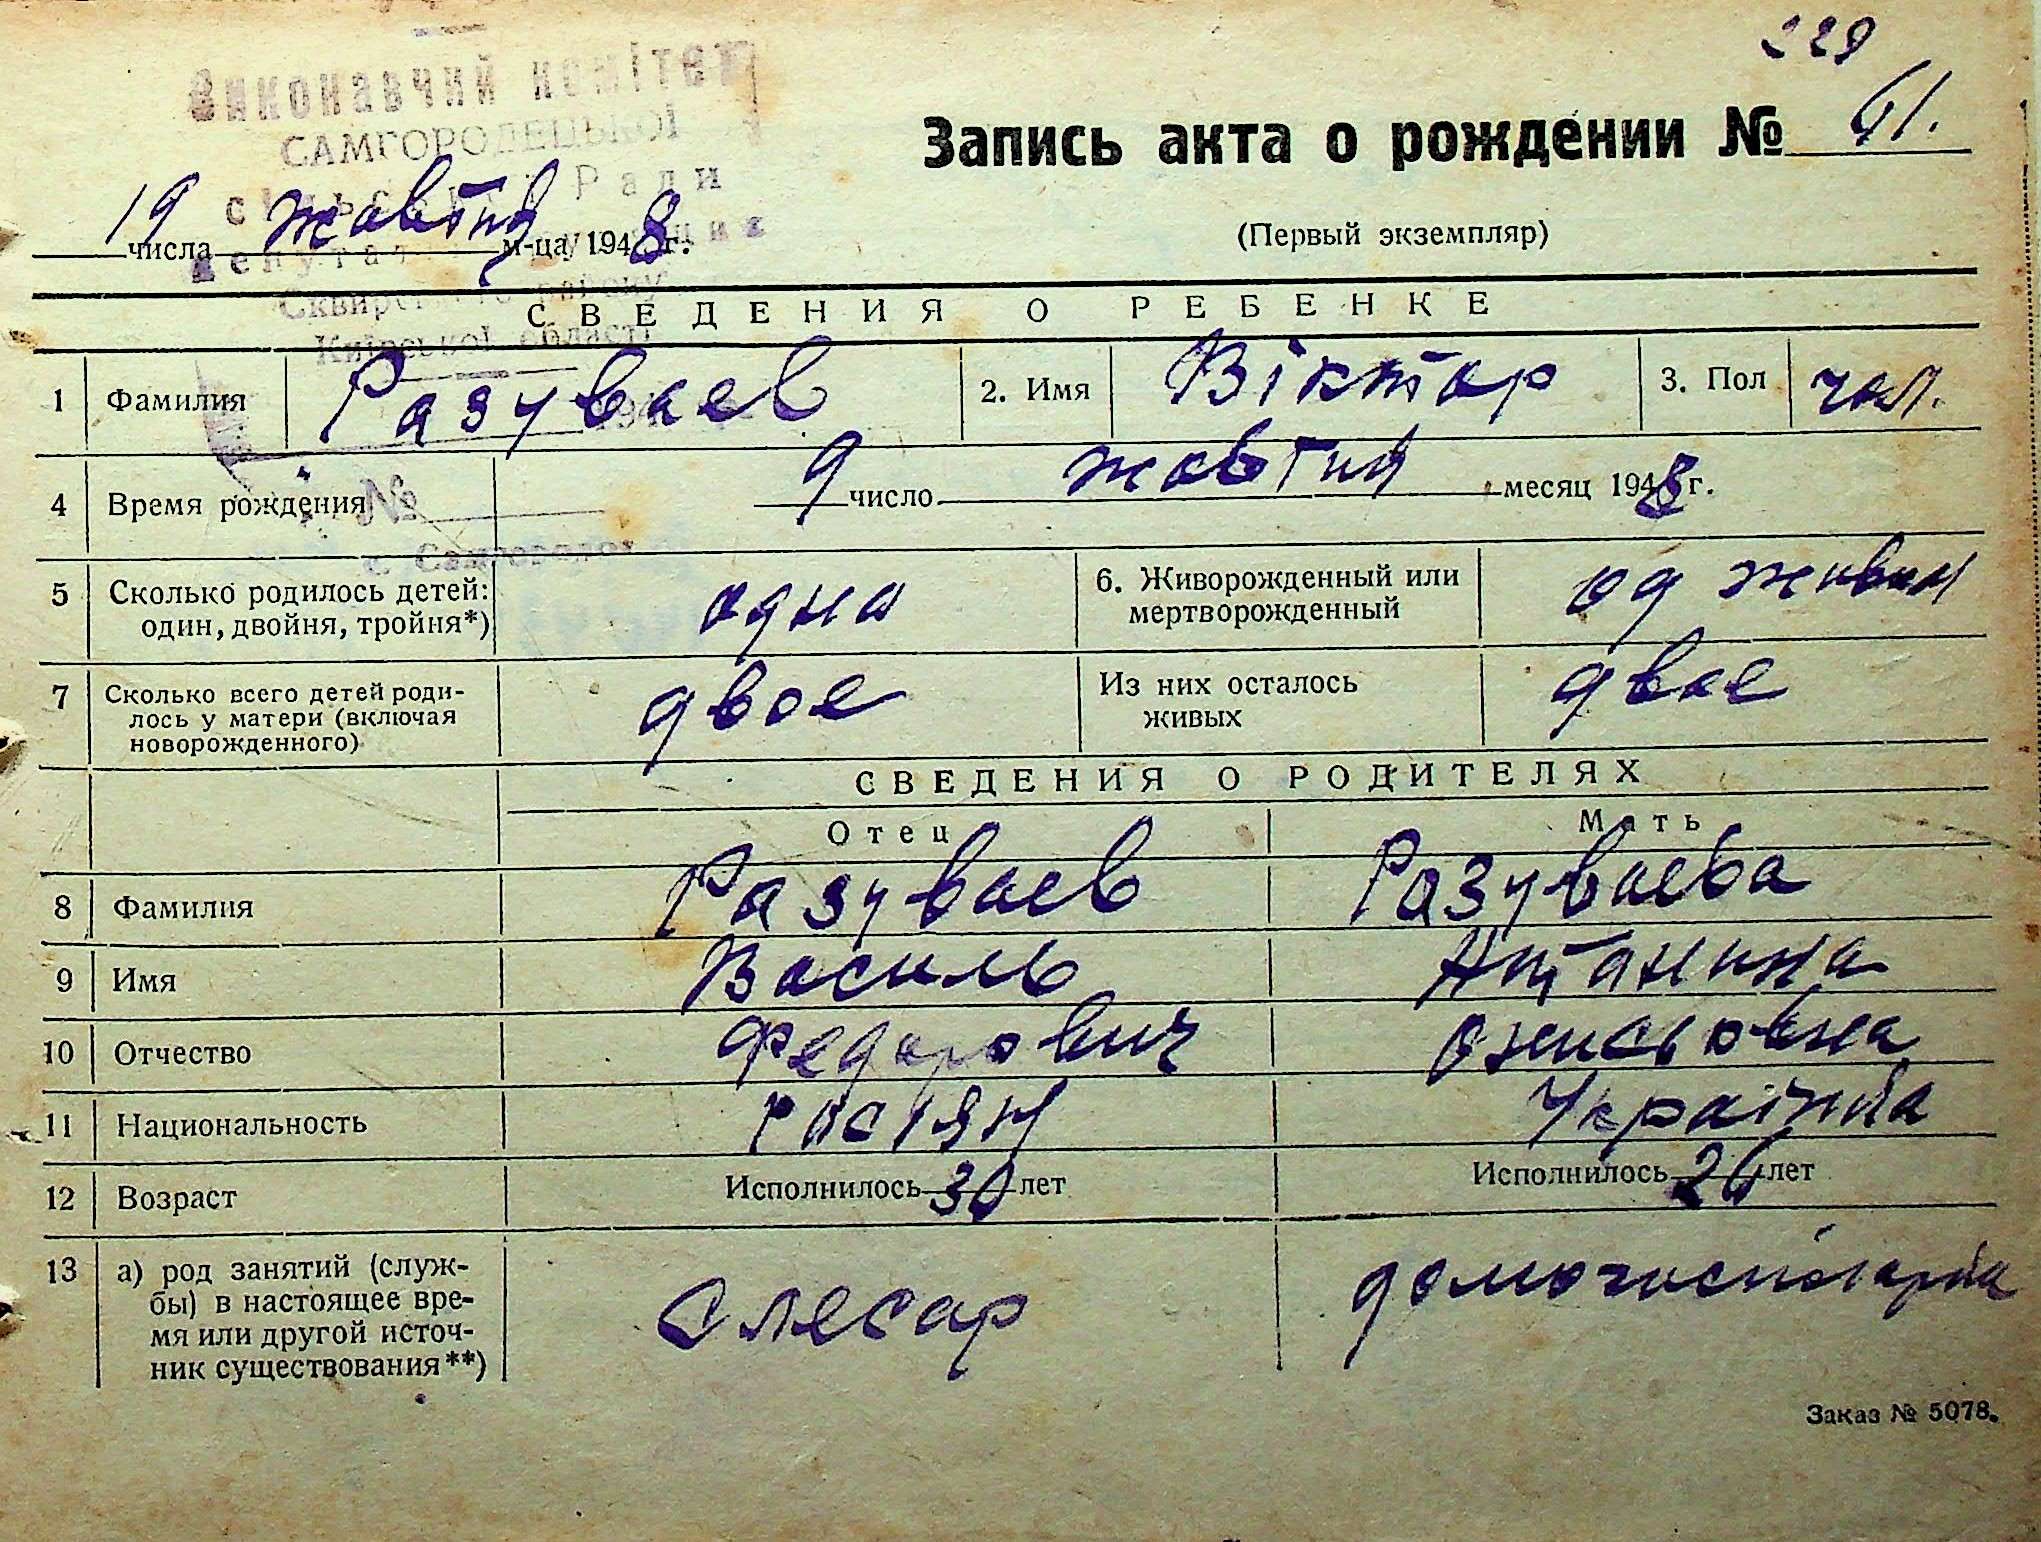 228
Виконавчий комітет
САМГОРОДЕЦЬКОЇ
сільської Ради
депутатів трудящих
Сквирського району
Київської області
№
с Самгородок
Запись акта о рождении № 61.
19 числа жовтня м-ца 1948 г.
(Первый экземпляр)
СВЕДЕНИЯ О РЕБЕНКЕ
1 Фамилия Разуваев 2. Имя Віктор 3. Пол чол.
4 Время рождения 9 число жовтня месяц 1948 г.
5 Сколько родилось детей: один, двойня, тройня*) одна 6. Живорожденный или мертворожденный од живим
7 Сколько всего детей роди-
лось у матери (включая
новорожденного) двое Из них осталось живых двое
СВЕДЕНИЯ О РОДИТЕЛЯХ
Отец Мать
8 Фамилия Разуваев Разуваева
9 Имя Василь Антанина
10 Отчество Федорович Онисьовна
11 Национальность росіян Українка
12 Возраст Исполнилось 30 лет Исполнилось 26 лет
13 а) род занятий (служ-
бы) в настоящее вре-
мя или другой источ-
ник существования**) Слесар домогосподарка
Заказ № 5078.